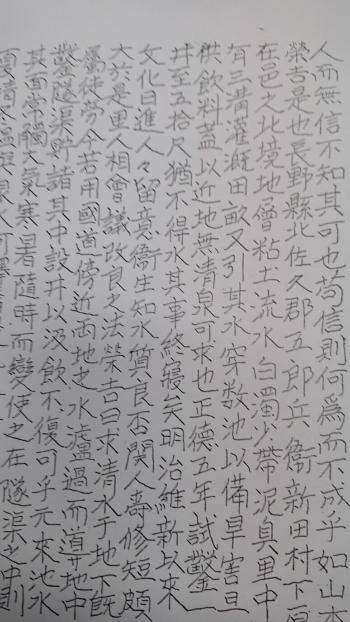 人而無信不知其可也苟信則何為而不成乎如山本
榮吉是也長野縣北佐久郡五郎兵衞新田村下原
在邑之北境地層粘土流水白濁少帶泥臭里中
有三溝灌漑田畝又引其水穿数池以備旱害且
供飲料蓋以近地無清泉可求也正德五年試鑿
井至五拾尺猶不得水其事終寢矣明治維新以來
文化日進人々留意衞生知水質良否関人壽修短頗
大於是里人相會議改良之法榮吉曰求清水于地下既
屬徒勞今若用國道傍近両地之水濾過而導地中
鑿隧渠貯諸其中設井以汲飲不復可乎元來池水
其面常觸大氣寒暑隨時而變使之在隧渠之中則